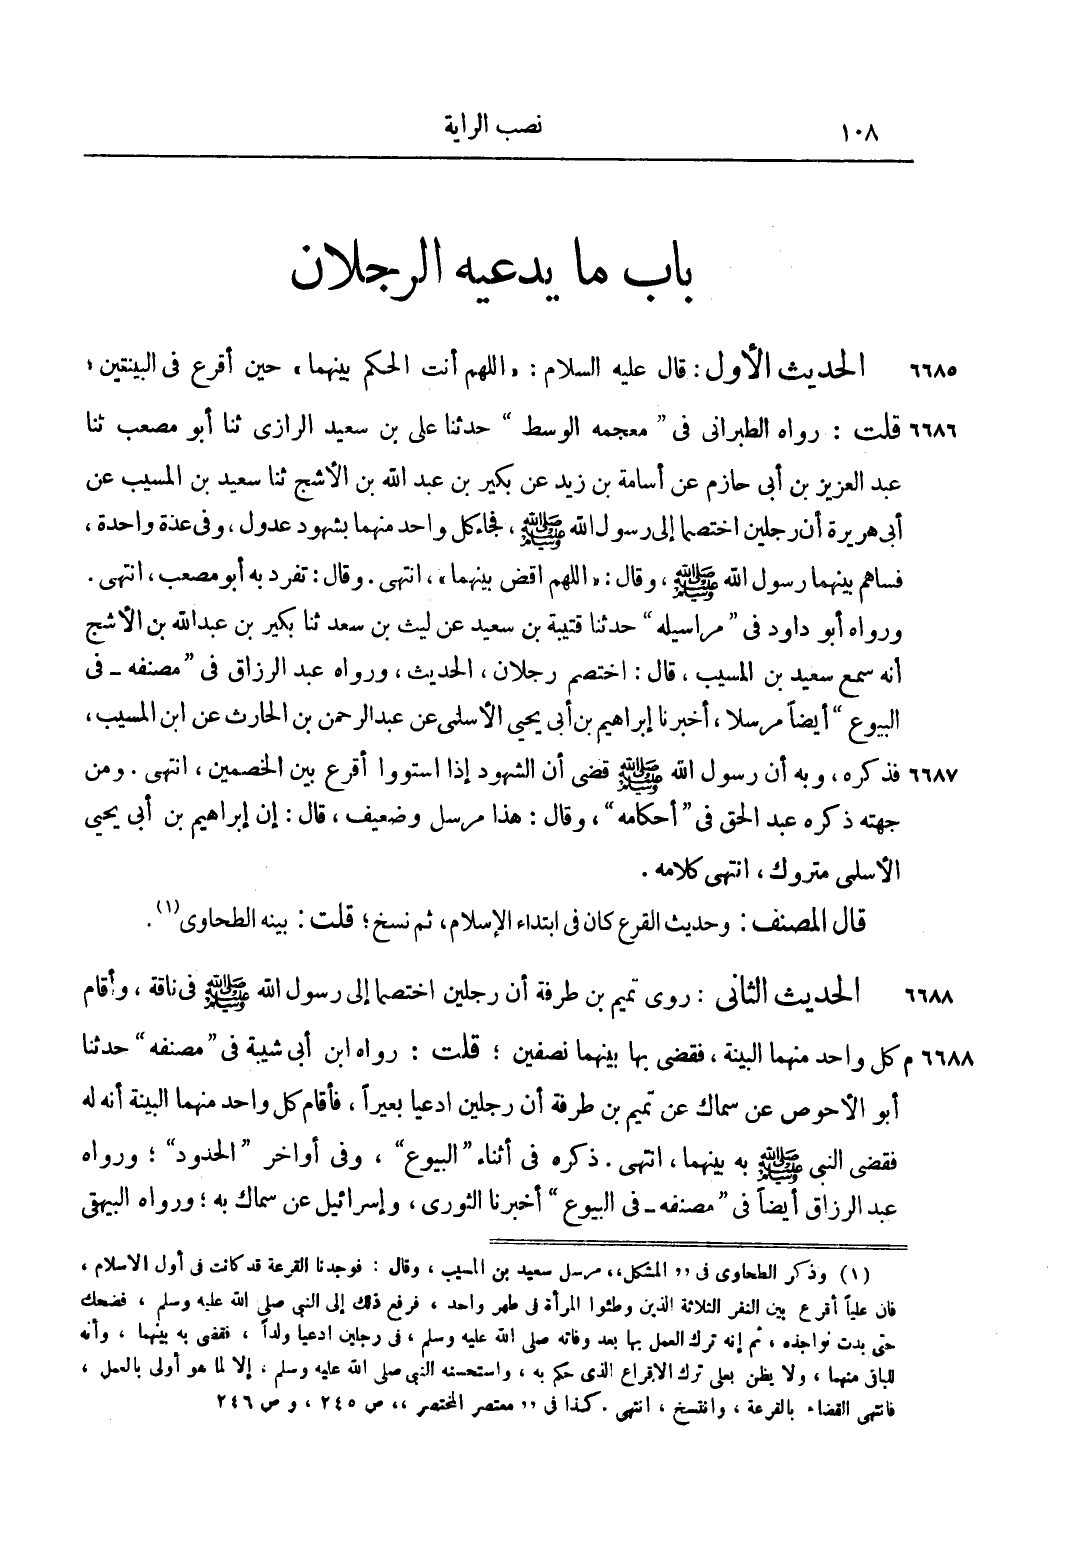 ١٠٨ نصب الراية
باب ما يدعيه الرجلان
٦٦٨٥ الحديث الأول: قال عليه السلام: «اللهم أنت الحكم بينهما» حين أقرع فى البينتين؛
٦٦٨٦ قلت: رواه الطبرانى فى "معجمه الوسط" حدثنا على بن سعيد الرازى ثنا أبو مصعب ثنا
عبد العزيز بن أبى حازم عن أسامة بن زيد عن بكير بن عبد الله بن الأشج ثنا سعيد بن المسيب عن
أبى هريرة أن رجلين اختصما إلى رسول الله ﷺ، فجاء كل واحد منهما بشهود عدول، وفى عدة واحدة،
فساهم بينهما رسول الله ﷺ، وقال: «اللهم اقض بينهما»، انتهى. وقال: تفرد به أبو مصعب، انتهى.
ورواه أبو داود فى "مراسيله" حدثنا قتيبة بن سعيد عن ليث بن سعد ثنا بكير بن عبدالله بن الأشج
أنه سمع سعيد بن المسيب، قال: اختصم رجلان، الحديث، ورواه عبد الرزاق فى "مصنفه ـ فى
البيوع" أيضاً مرسلا، أخبرنا إبراهيم بن أبى يحيى الأسلمى عن عبد الرحمن بن الحارث عن ابن المسيب،
٦٦٨٧ فذكره، وبه أن رسول الله ﷺ قضى أن الشهود إذا استووا أقرع بين الخصمين، انتهى. ومن
جهته ذكره عبد الحق فى "أحكامه"، وقال: هذا مرسل وضعيف، قال: إن إبراهيم بن أبى يحيى
الأسلمى متروك، انتهى كلامه.
قال المصنف: وحديث القرع كان فى ابتداء الإسلام، ثم نسخ؛ قلت: بينه الطحاوى(١).
٦٦٨٨ الحديث الثانى: روى تميم بن طرفة أن رجلين اختصما إلى رسول الله ﷺ فى ناقة، وأقام
٦٦٨٨ م كل واحد منهما البينة، فقضى بها بينهما نصفين؛ قلت: رواه ابن أبى شيبة فى "مصنفه" حدثنا
أبو الأحوص عن سماك عن تميم بن طرفة أن رجلين ادعيا بعيراً، فأقام كل واحد منهما البينة أنه له
فقضى النبى ﷺ به بينهما، انتهى. ذكره فى أثناء "البيوع"، وفى أواخر "الحدود"؛ ورواه
عبد الرزاق أيضاً فى "مصنفه ـ فى البيوع" أخبرنا الثورى، وإسرائيل عن سماك به؛ ورواه البيهقى
(١) وذكر الطحاوى فى ,,المشكل,, مرسل سعيد بن المسيب، وقال: فوجدنا القرعة قد كانت فى أول الاسلام،
فان علياً أقرع بين النفر الثلاثة الذين وطئوا المرأة فى طهر واحد، فرفع ذلك إلى النبى صلى الله عليه وسلم، فضحك
حتى بدت نواجذه، ثم إنه ترك العمل بها بعد وفاته صلى الله عليه وسلم، فى رجلين ادعيا ولداً، فقضى به بينهما، وأنه
للباقى منهما، ولا يظن بعلى ترك الاقراع الذى حكم به، واستحسنه النبى صلى الله عليه وسلم، إلا لما هو أولى بالعمل،
فانتهى القضاء بالقرعة، وانفسخ، انتهى. كذا فى ,,معتصر المختصر,, ص ٢٤٥، و ص ٢٤٦